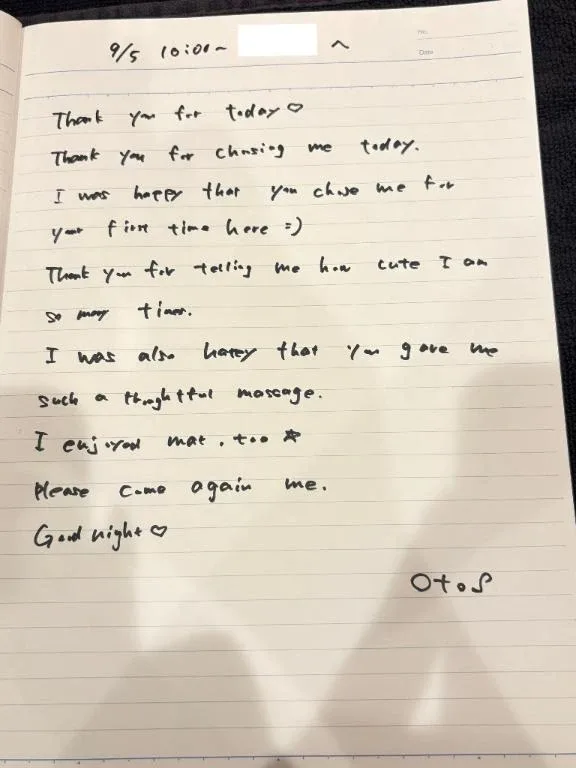 No.
Date
9/5 10:00~ へ
Thank you for today♡
Thank you for chosing me today.
I was happy that you chose me for
your first time here =)
Thank you for telling me how cute I am
so many times.
I was also happy that you gave me
such a thoughtful massage.
I enjoyed mat, too ☆
please come again me.
Good night♡